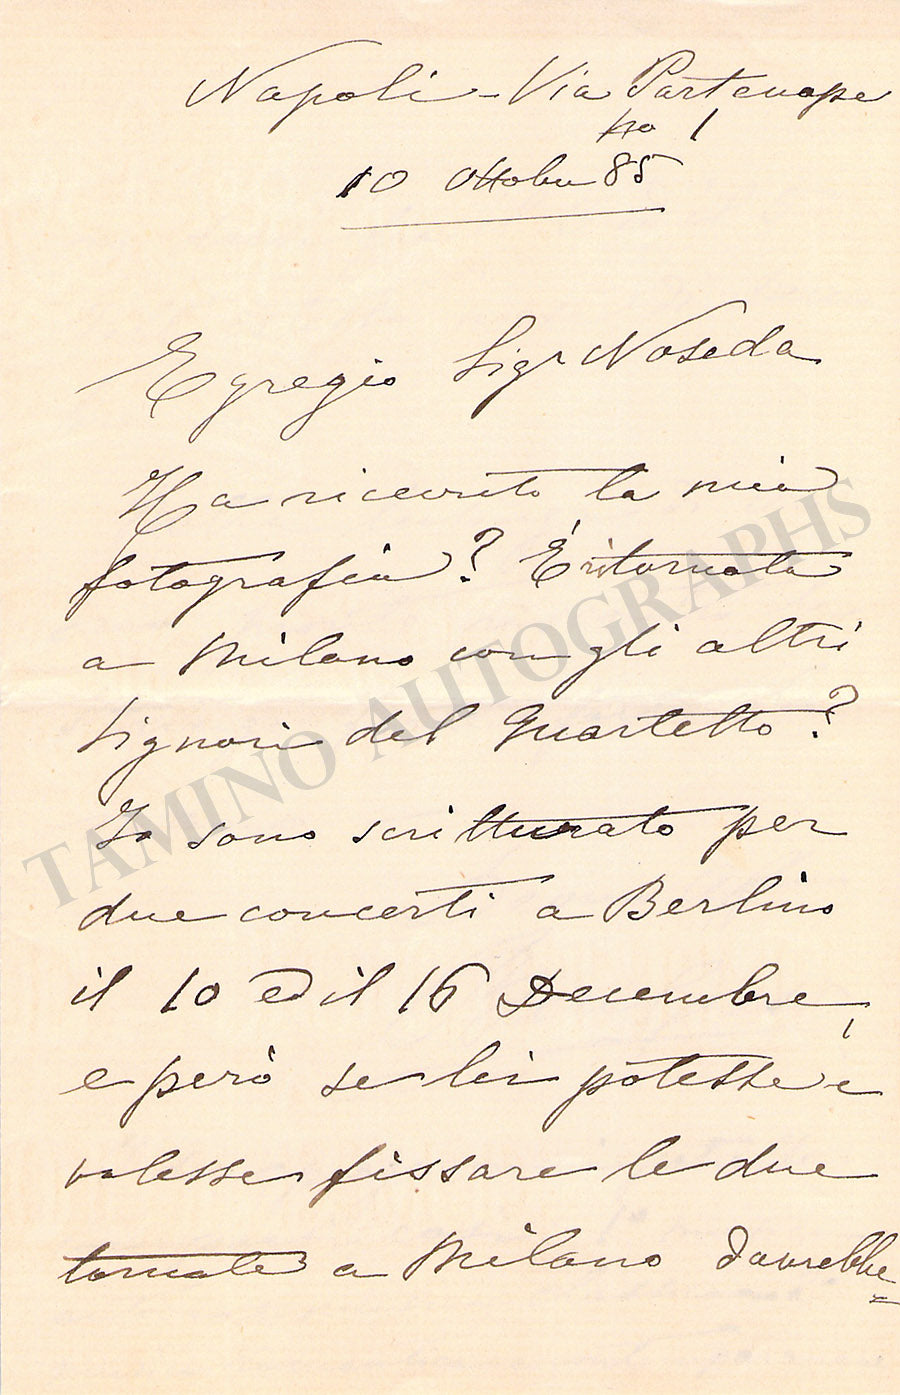 Napoli - Via Partenope
No 1
10 Ottobre 85
Egregio Sigr Noseda
Ha ricevuto la mia
fotografia? È ritornata
a Milano con gli altri
Signori del Quartetto?
Io sono scritturato per
due concerti a Berlino
il 10 ed il 16 Decembre,
e però se lei potesse e
volesse fissare le due
tornate a Milano dovrebbe=
TAMINO AUTOGRAPHS